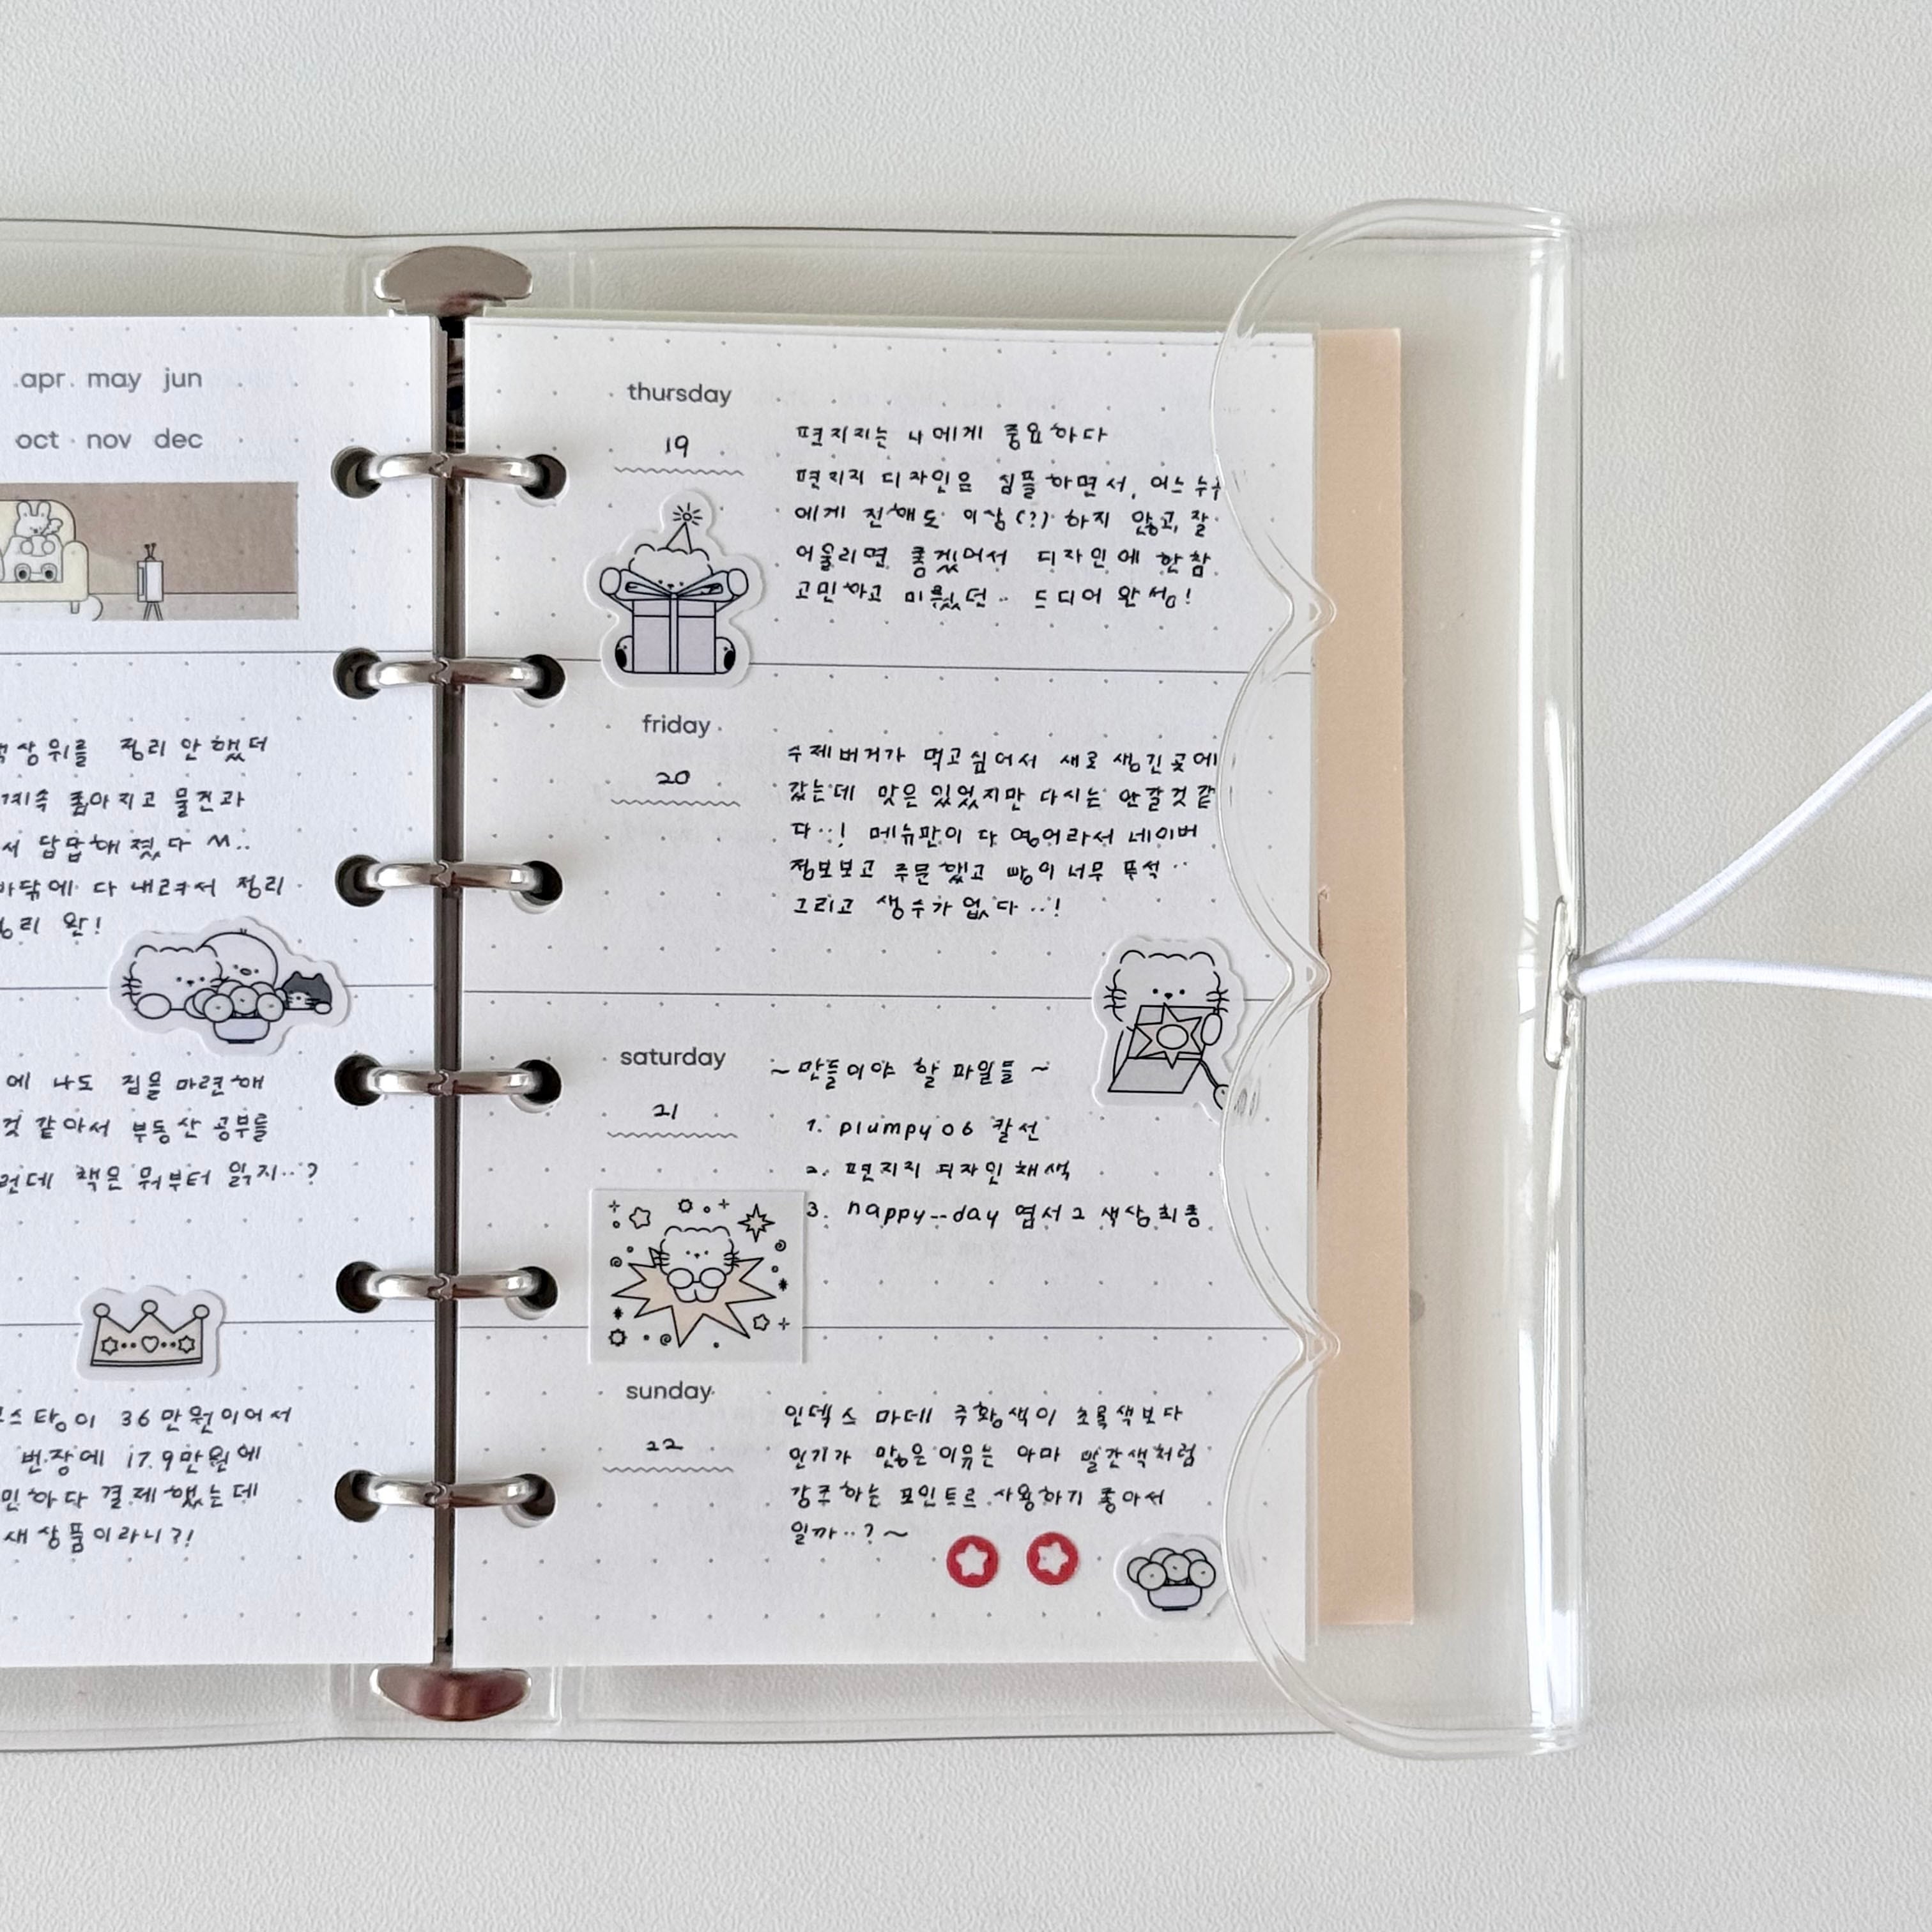 apr may jun
oct nov dec
상위를 정리 안했더
계속 좁아지고 물건과
서 답답해졌다 ㅠㅠ..
바닥에 다 내려서 정리
정리 완!
에 나도 집을 마련해
것 같아서 부동산 공부를
런데 책은 뭐부터 읽지..?
스탕이 36만원이어서
번장에 17.9만원에
민하다 결제했는데
새상품이라니?!
thursday
19
편지지는 나에게 중요하다
편지지 디자인은 심플하면서, 어느 누구
에게 전해도 이상(?) 하지 않고, 잘
어울리면 좋겠어서 디자인에 한참
고민하고 미뤘던.. 드디어 완성!
friday
20
수제버거가 먹고싶어서 새로 생긴곳에
갔는데 맛은 있었지만 다시는 안갈것같
다..! 메뉴판이 다 영어라서 네이버
정보보고 주문했고 빵이 너무 푸석..
그리고 생수가 없다..!
saturday
21
~만들어야 할 파일들~
1. plumpy 06 칼선
2. 편지지 디자인 채색
3. happy--day 엽서2 색상 최종
sunday
22
인덱스 마데 주황색이 초록색보다
인기가 많은 이유는 아마 빨간색처럼
강주하는 포인트로 사용하기 좋아서
일까..?~